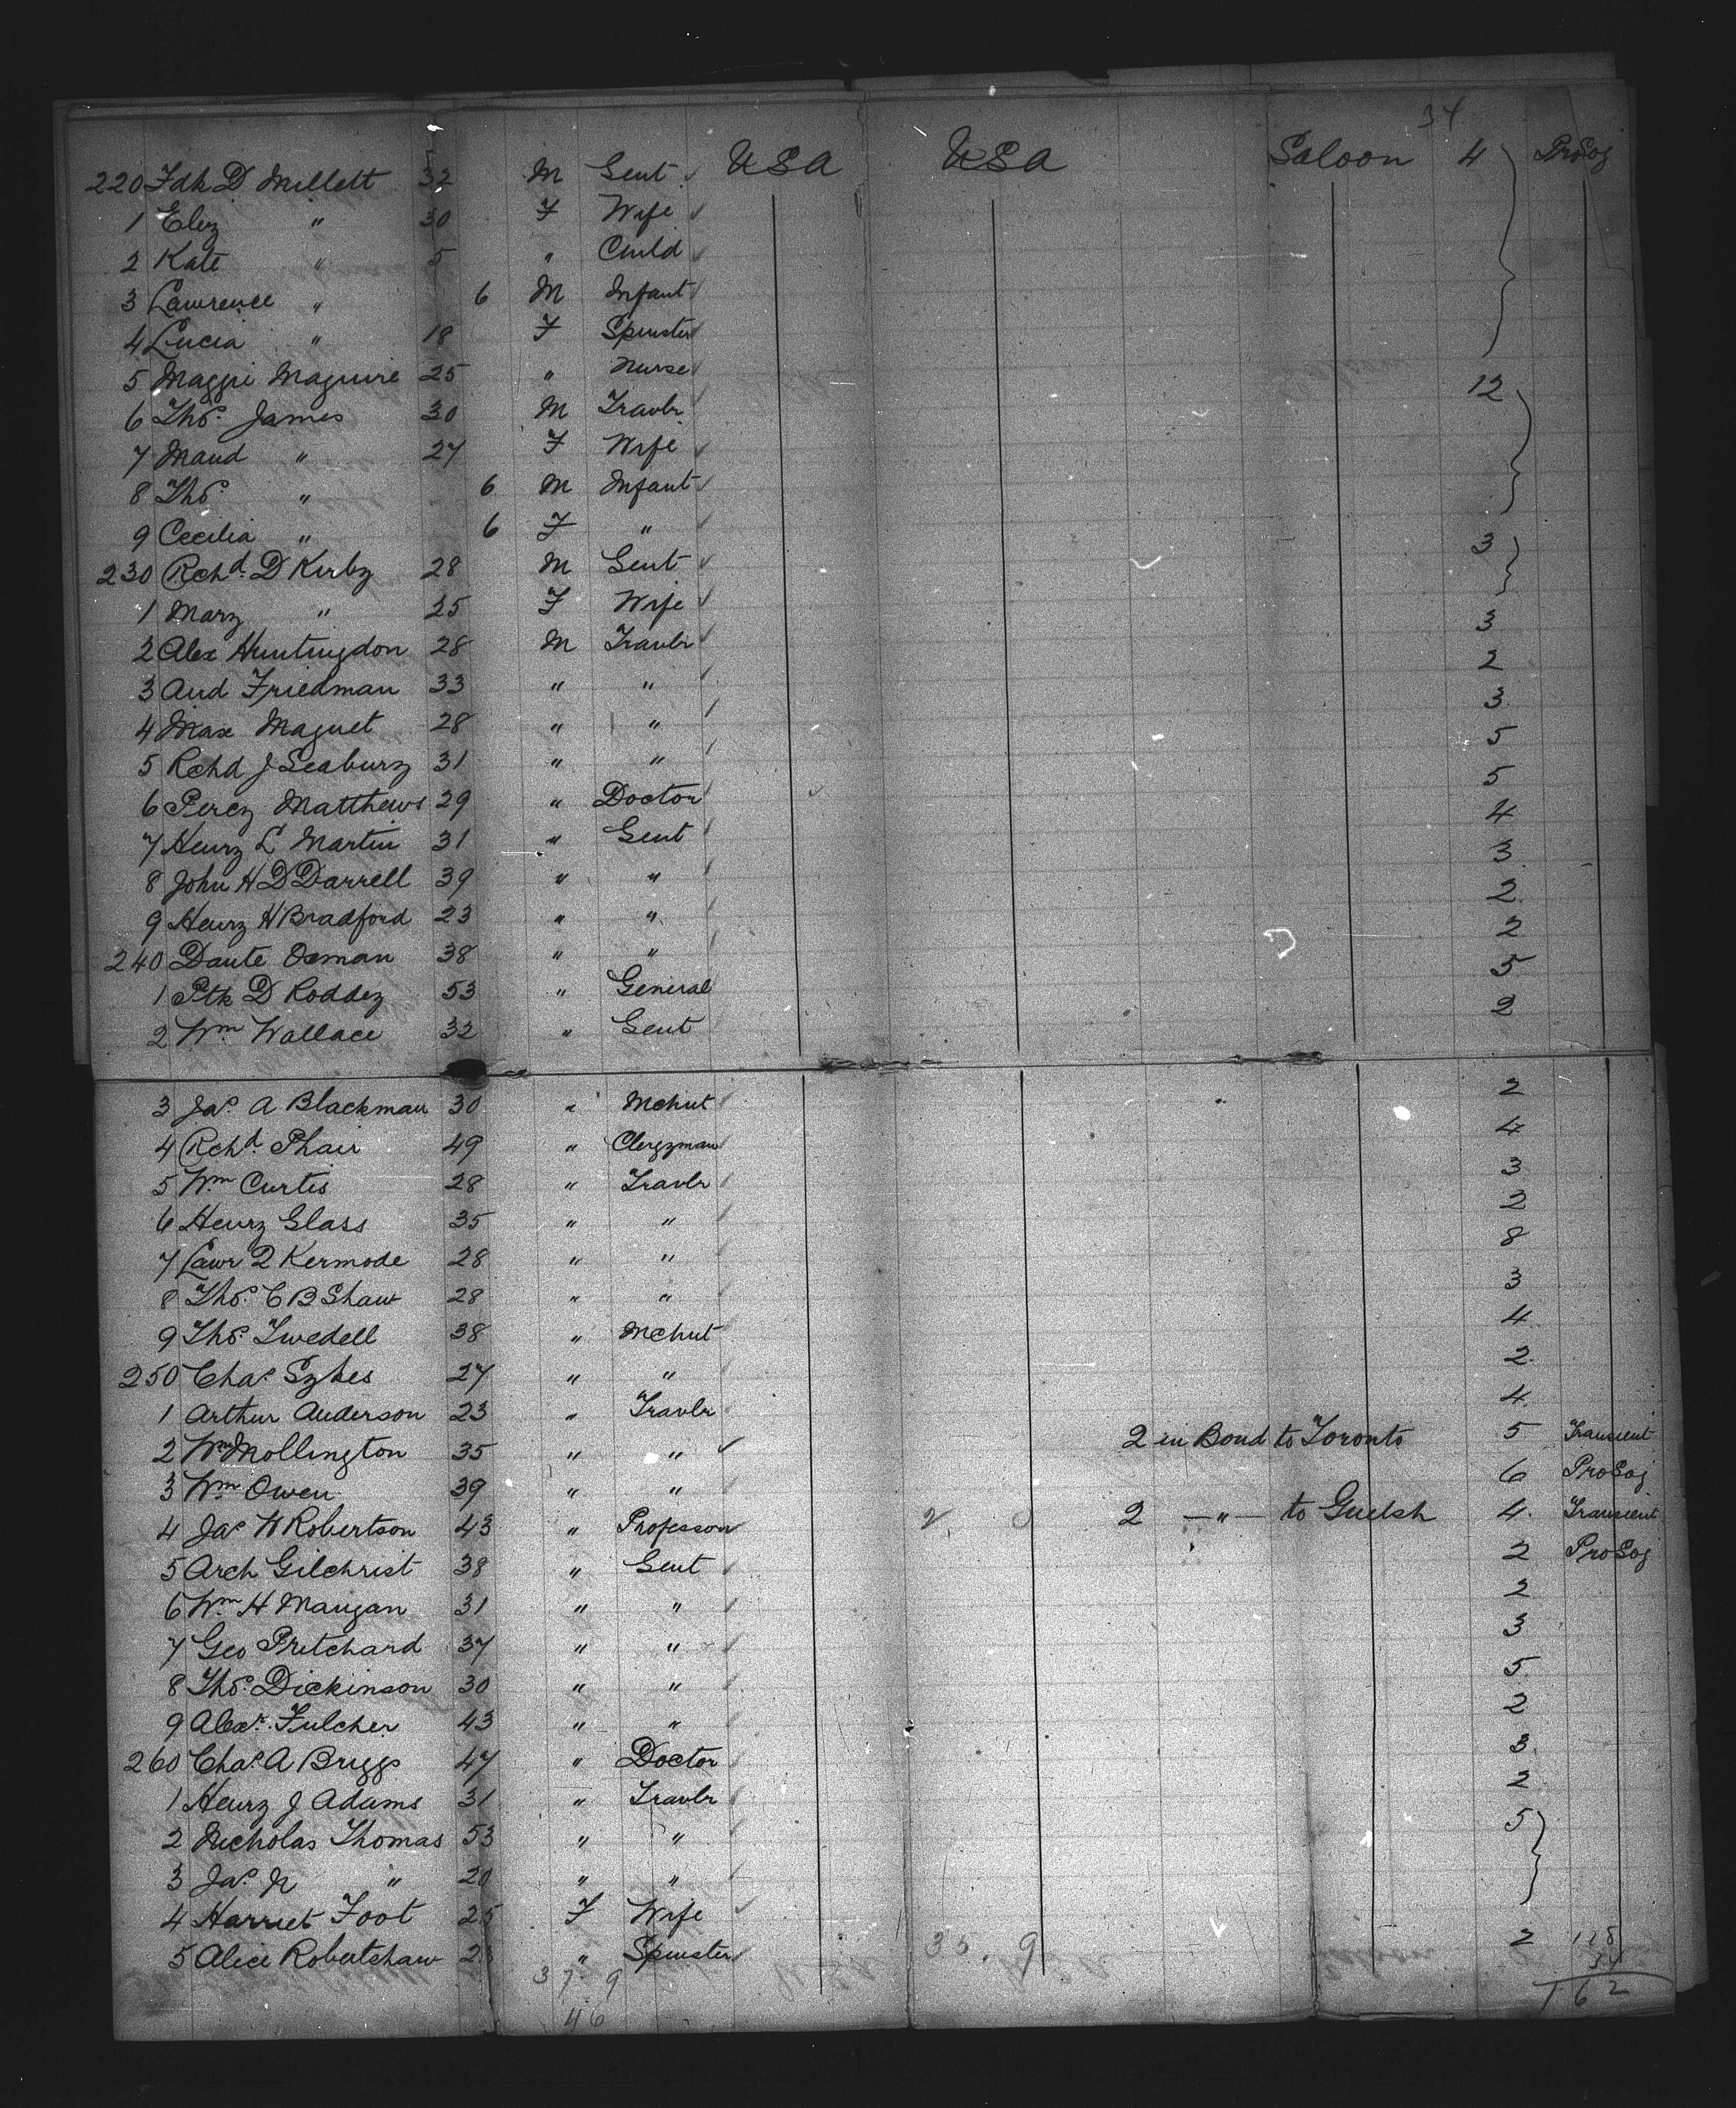 34
220 Fdk D Millett 32 M Gent USA USA Saloon 4 ProSoj
1 Eliz " 30 F Wife
2 Kate " 5 " Child
3 Lawrence " 6 M Infant
4 Lucia " 18 F Spinster
5 Maggie Maguire 25 " Nurse
6 Thos. James 30 M Travlr 12
7 Maud " 27 F Wife
8 Thos. " 6 M Infant
9 Cecilia " 6 F "
230 Rchd. D Kirby 28 M Gent 3
1 Mary " 25 F Wife
2 Alex Huntingdon 28 M Travlr 3
3 And Friedman 33 " " 2
4 Max Magnet 28 " " 3
5 Rchd J Seabury 31 " " 5
6 Percy Matthews 29 " Doctor 5
7 Henry L Martin 31 " Gent 4
8 John H D Darrell 39 " " 3
9 Henry H Bradford 23 " " 2
240 Dante Oxman 38 " " 2
1 Ptk D Roddey 53 " General 5
2 Wm. Wallace 32 " Gent 2
3 Jas. A Blackman 30 " Mchnt 2
4 Rchd. Phair 49 " Clergyman 4
5 Wm. Curtis 28 " Travlr 3
6 Henry Glass 35 " " 2
7 Lawr Q Kermode 28 " " 8
8 Thos. C B Shaw 28 " " 3
9 Thos. Twedell 38 " Mchnt 4
250 Chas. Sykes 27 " " 2
1 Arthur Anderson 23 " Travlr 4
2 Wm Mollington 35 " " 2 in Bond to Toronto 5 Transient
3 Wm. Owen 39 " " 6 ProSoj
4 Jas. W Robertson 43 " Professor 2 2 —"— to Guelph 4 Transient
5 Arch Gilchrist 38 " Gent 2 ProSoj
6 Wm. H Mangan 31 " " 2
7 Geo Pritchard 37 " " 3
8 Thos. Dickinson 30 " " 5
9 Alexr. Fulcher 43 " " 2
260 Chas. A Briggs 47 " Doctor 3
1 Henry J Adams 31 " Travlr 2
2 Nicholas Thomas 53 " " 5
3 Jas. Jr " 20 " "
4 Harriet Foot 25 F Wife
5 Alice Robertshaw 2 " Spinster 35. 9 2 128
37 9 34
46 162